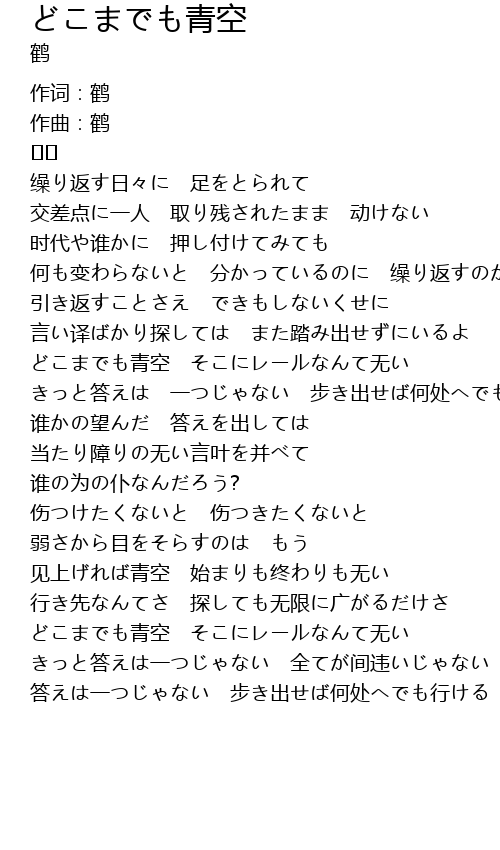 どこまでも青空
鹤
作词：鹤
作曲：鹤
缲り返す日々に　足をとられて
交差点に一人　取り残されたまま　动けない
时代や谁かに　押し付けてみても
何も変わらないと　分かっているのに　缲り返すのか
引き返すことさえ　できもしないくせに
言い译ばかり探しては　また踏み出せずにいるよ
どこまでも青空　そこにレールなんて无い
きっと答えは　一つじゃない　歩き出せば何処へでも
谁かの望んだ　答えを出しては
当たり障りの无い言叶を并べて
谁の为の仆なんだろう?
伤つけたくないと　伤つきたくないと
弱さから目をそらすのは　もう
见上げれば青空　始まりも终わりも无い
行き先なんてさ　探しても无限に广がるだけさ
どこまでも青空　そこにレールなんて无い
きっと答えは一つじゃない　全てが间违いじゃない
答えは一つじゃない　歩き出せば何处へでも行ける